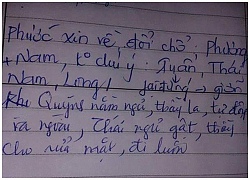 Phước xin về, đổi chỗ: Phương
+ Nam, k° chú ý: Tuấn, Thái
Nam, Long/ giỡn
Khi Quỳnh nằm ngủ, thầy la, từ đây
ra ngoài, Thái ngủ gật, thầy
cho rửa mặt, đi luôn